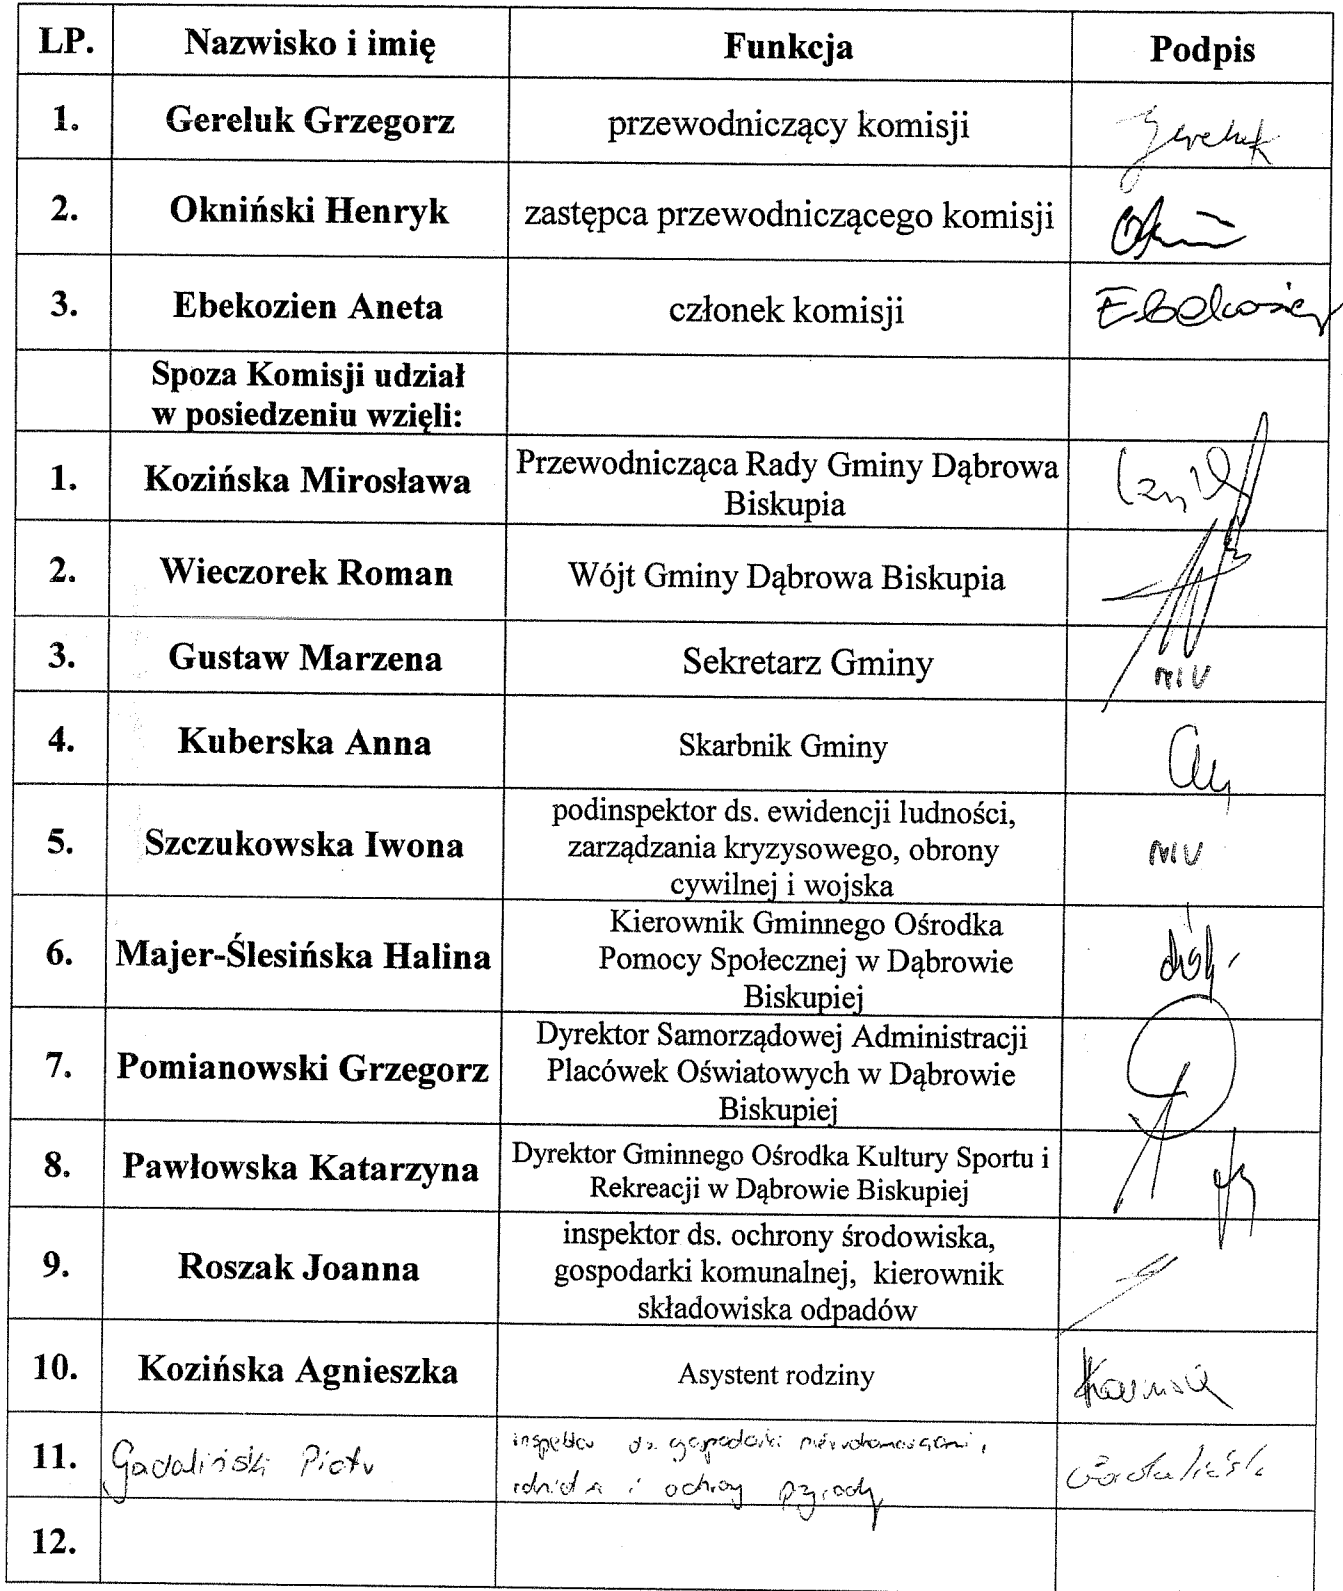 LP. Nazwisko i imię Funkcja Podpis
1. Gereluk Grzegorz przewodniczący komisji Gereluk
2. Okniński Henryk zastępca przewodniczącego komisji
3. Ebekozien Aneta członek komisji Ebekozien
Spoza Komisji udział
w posiedzeniu wzięli:
1. Kozińska Mirosława Przewodnicząca Rady Gminy Dąbrowa
Biskupia
2. Wieczorek Roman Wójt Gminy Dąbrowa Biskupia
3. Gustaw Marzena Sekretarz Gminy
4. Kuberska Anna Skarbnik Gminy
5. Szczukowska Iwona podinspektor ds. ewidencji ludności,
zarządzania kryzysowego, obrony
cywilnej i wojska
6. Majer-Ślesińska Halina Kierownik Gminnego Ośrodka
Pomocy Społecznej w Dąbrowie
Biskupiej
7. Pomianowski Grzegorz Dyrektor Samorządowej Administracji
Placówek Oświatowych w Dąbrowie
Biskupiej
8. Pawłowska Katarzyna Dyrektor Gminnego Ośrodka Kultury Sportu i
Rekreacji w Dąbrowie Biskupiej
9. Roszak Joanna inspektor ds. ochrony środowiska,
gospodarki komunalnej, kierownik
składowiska odpadów
10. Kozińska Agnieszka Asystent rodziny Kozińska
11. Gadaliński Piotr inspektor ds. gospodarki nieruchomościami, Gadaliński
i ochrony przyrody
12.